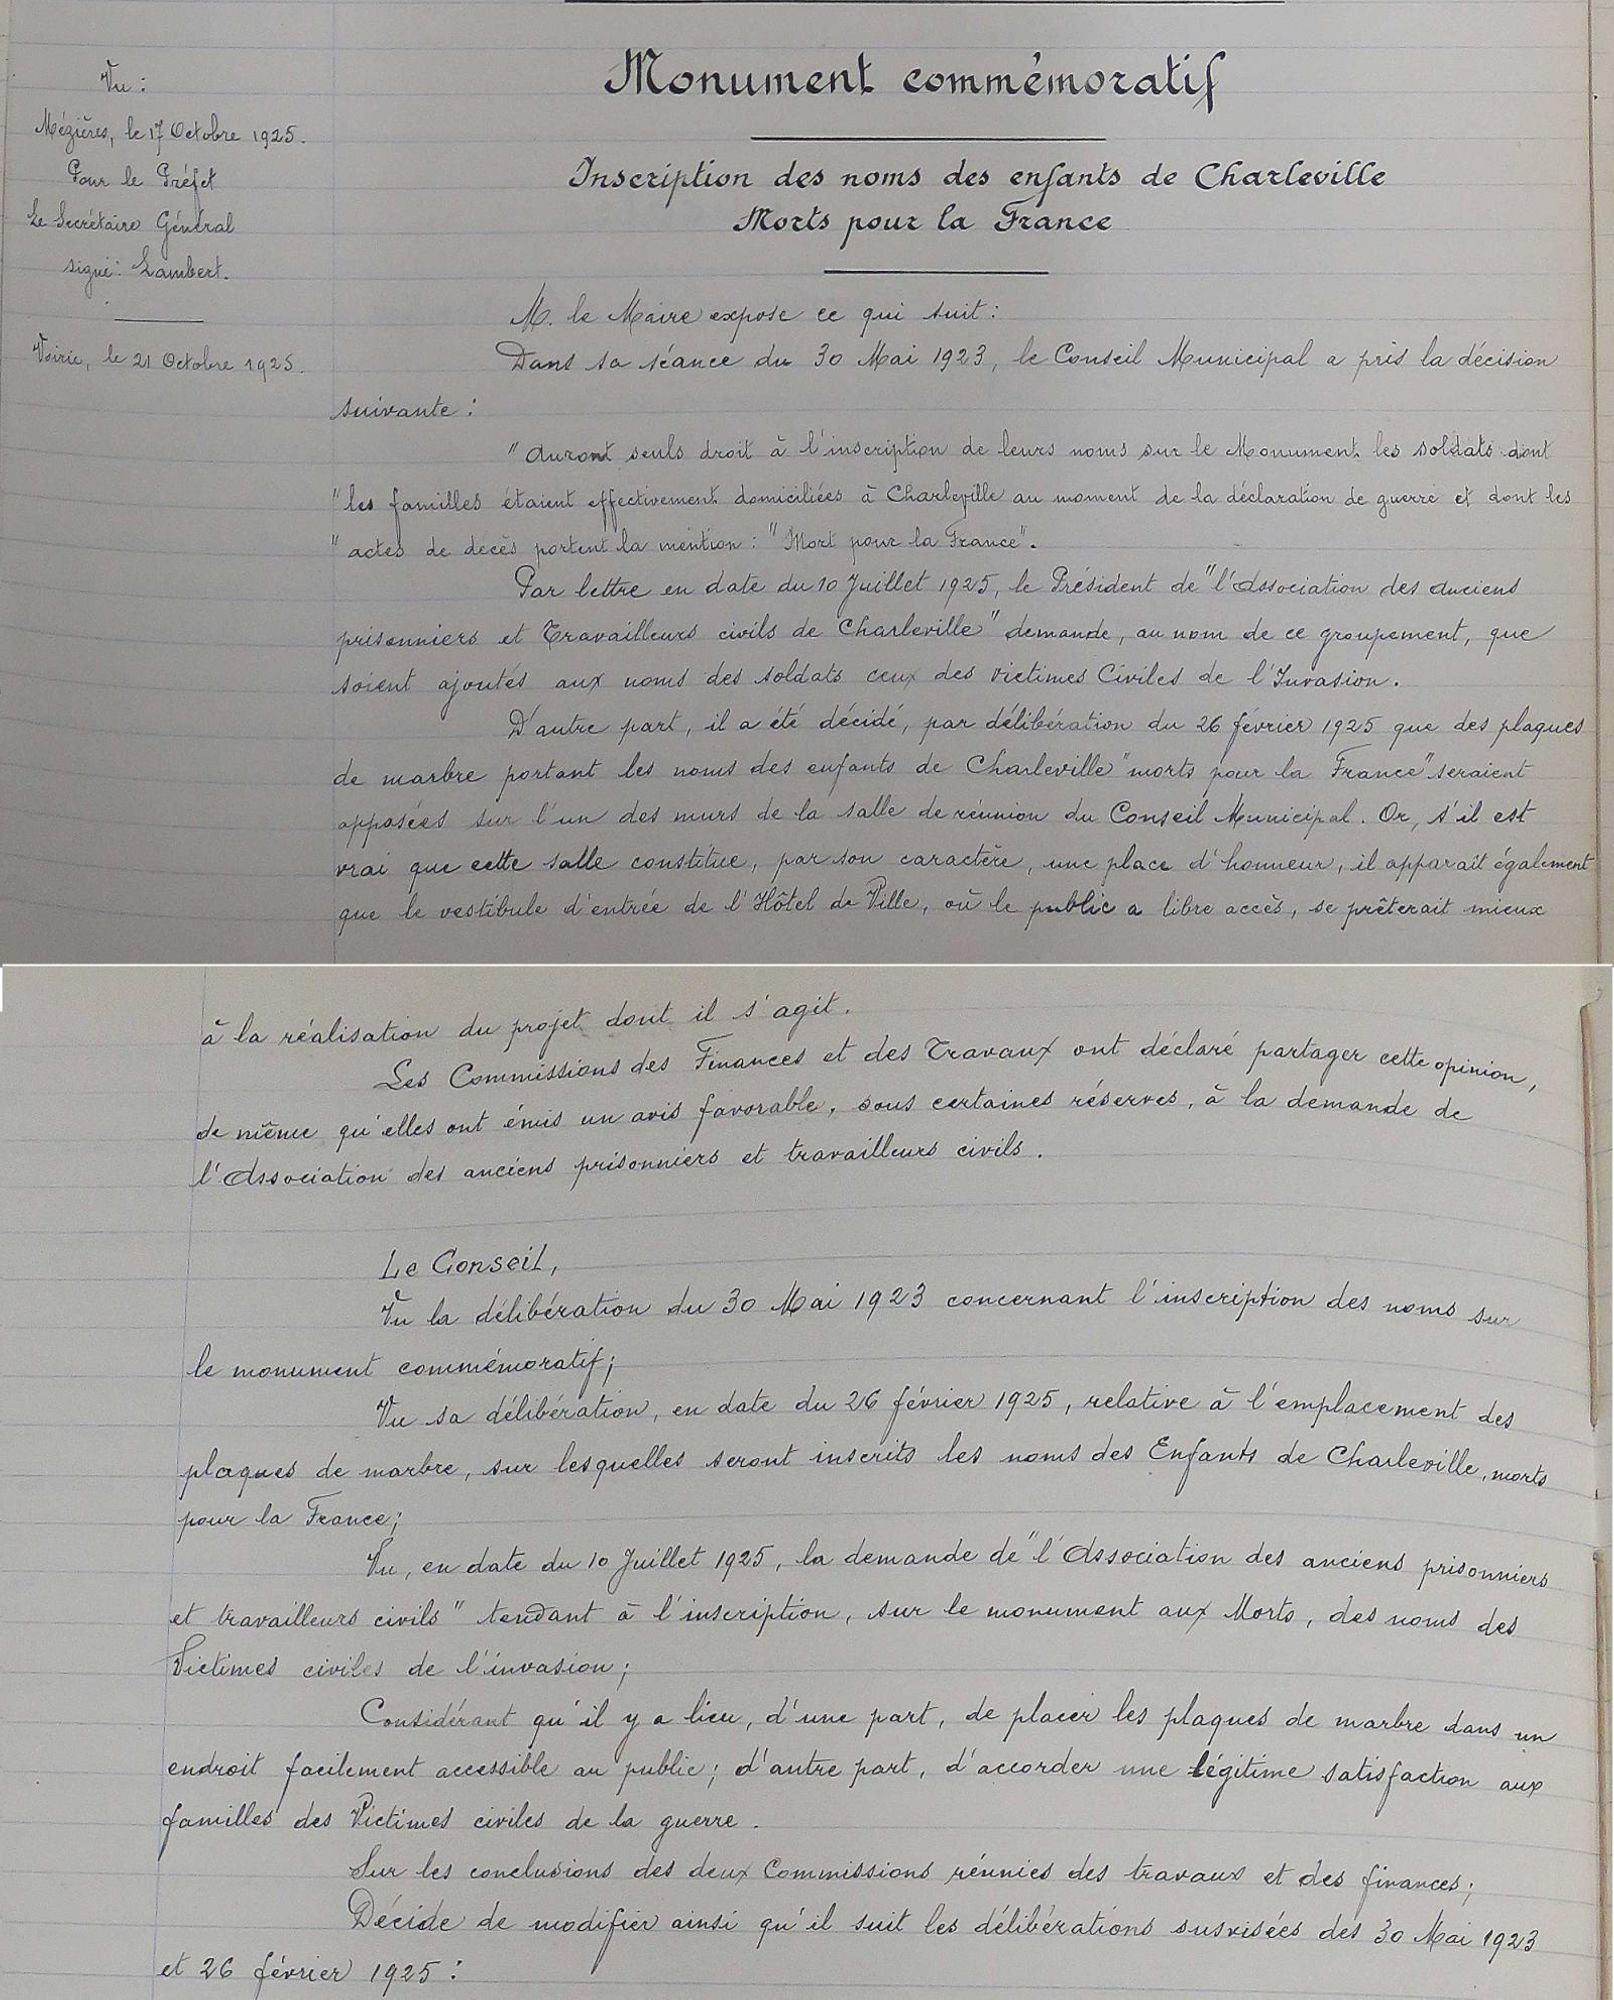 Vu :
Mézières, le 17 Octobre 1925.
Pour le Préfet
Le Secrétaire Général
signé : Lambert.
Voirie, le 21 Octobre 1925.
Monument commémoratif
Inscription des noms des enfants de Charleville
Morts pour la France
M. le Maire expose ce qui suit :
Dans sa séance du 30 Mai 1923, le Conseil Municipal a pris la décision
suivante :
" Auront seuls droit à l'inscription de leurs noms sur le Monument les soldats dont
" les familles étaient effectivement domiciliées à Charleville au moment de la déclaration de guerre et dont les
" actes de décès portent la mention : " Mort pour la France ".
Par lettre en date du 10 Juillet 1925, le Président de " l'Association des Anciens
prisonniers et Travailleurs civils de Charleville " demande, au nom de ce groupement, que
soient ajoutés aux noms des soldats ceux des victimes Civiles de l'Invasion.
D'autre part, il a été décidé, par délibération du 26 février 1925 que des plaques
de marbre portant les noms des enfants de Charleville " morts pour la France " seraient
apposées sur l'un des murs de la salle de réunion du Conseil Municipal. Or, s'il est
vrai que cette salle constitue, par son caractère, une place d'honneur, il apparaît également
que le vestibule d'entrée de l'Hôtel de Ville, où le public a libre accès, se prêterait mieux
à la réalisation du projet dont il s'agit.
Les Commissions des Finances et des Travaux ont déclaré partager cette opinion,
de même qu'elles ont émis un avis favorable, sous certaines réserves, à la demande de
l'Association des anciens prisonniers et travailleurs civils.
Le Conseil,
Vu la délibération du 30 Mai 1923 concernant l'inscription des noms sur
le monument commémoratif ;
Vu sa délibération, en date du 26 février 1925, relative à l'emplacement des
plaques de marbre, sur lesquelles seront inscrits les noms des Enfants de Charleville, morts
pour la France ;
Vu, en date du 10 Juillet 1925, la demande de " l'Association des anciens prisonniers
et travailleurs civils " tendant à l'inscription, sur le monument aux Morts, des noms des
Victimes civiles de l'invasion ;
Considérant qu'il y a lieu, d'une part, de placer les plaques de marbre dans un
endroit facilement accessible au public ; d'autre part, d'accorder une légitime satisfaction aux
familles des Victimes civiles de la guerre.
Sur les conclusions des deux Commissions réunies des travaux et des finances ;
Décide de modifier ainsi qu'il suit les délibérations susvisées des 30 Mai 1923
et 26 février 1925 :